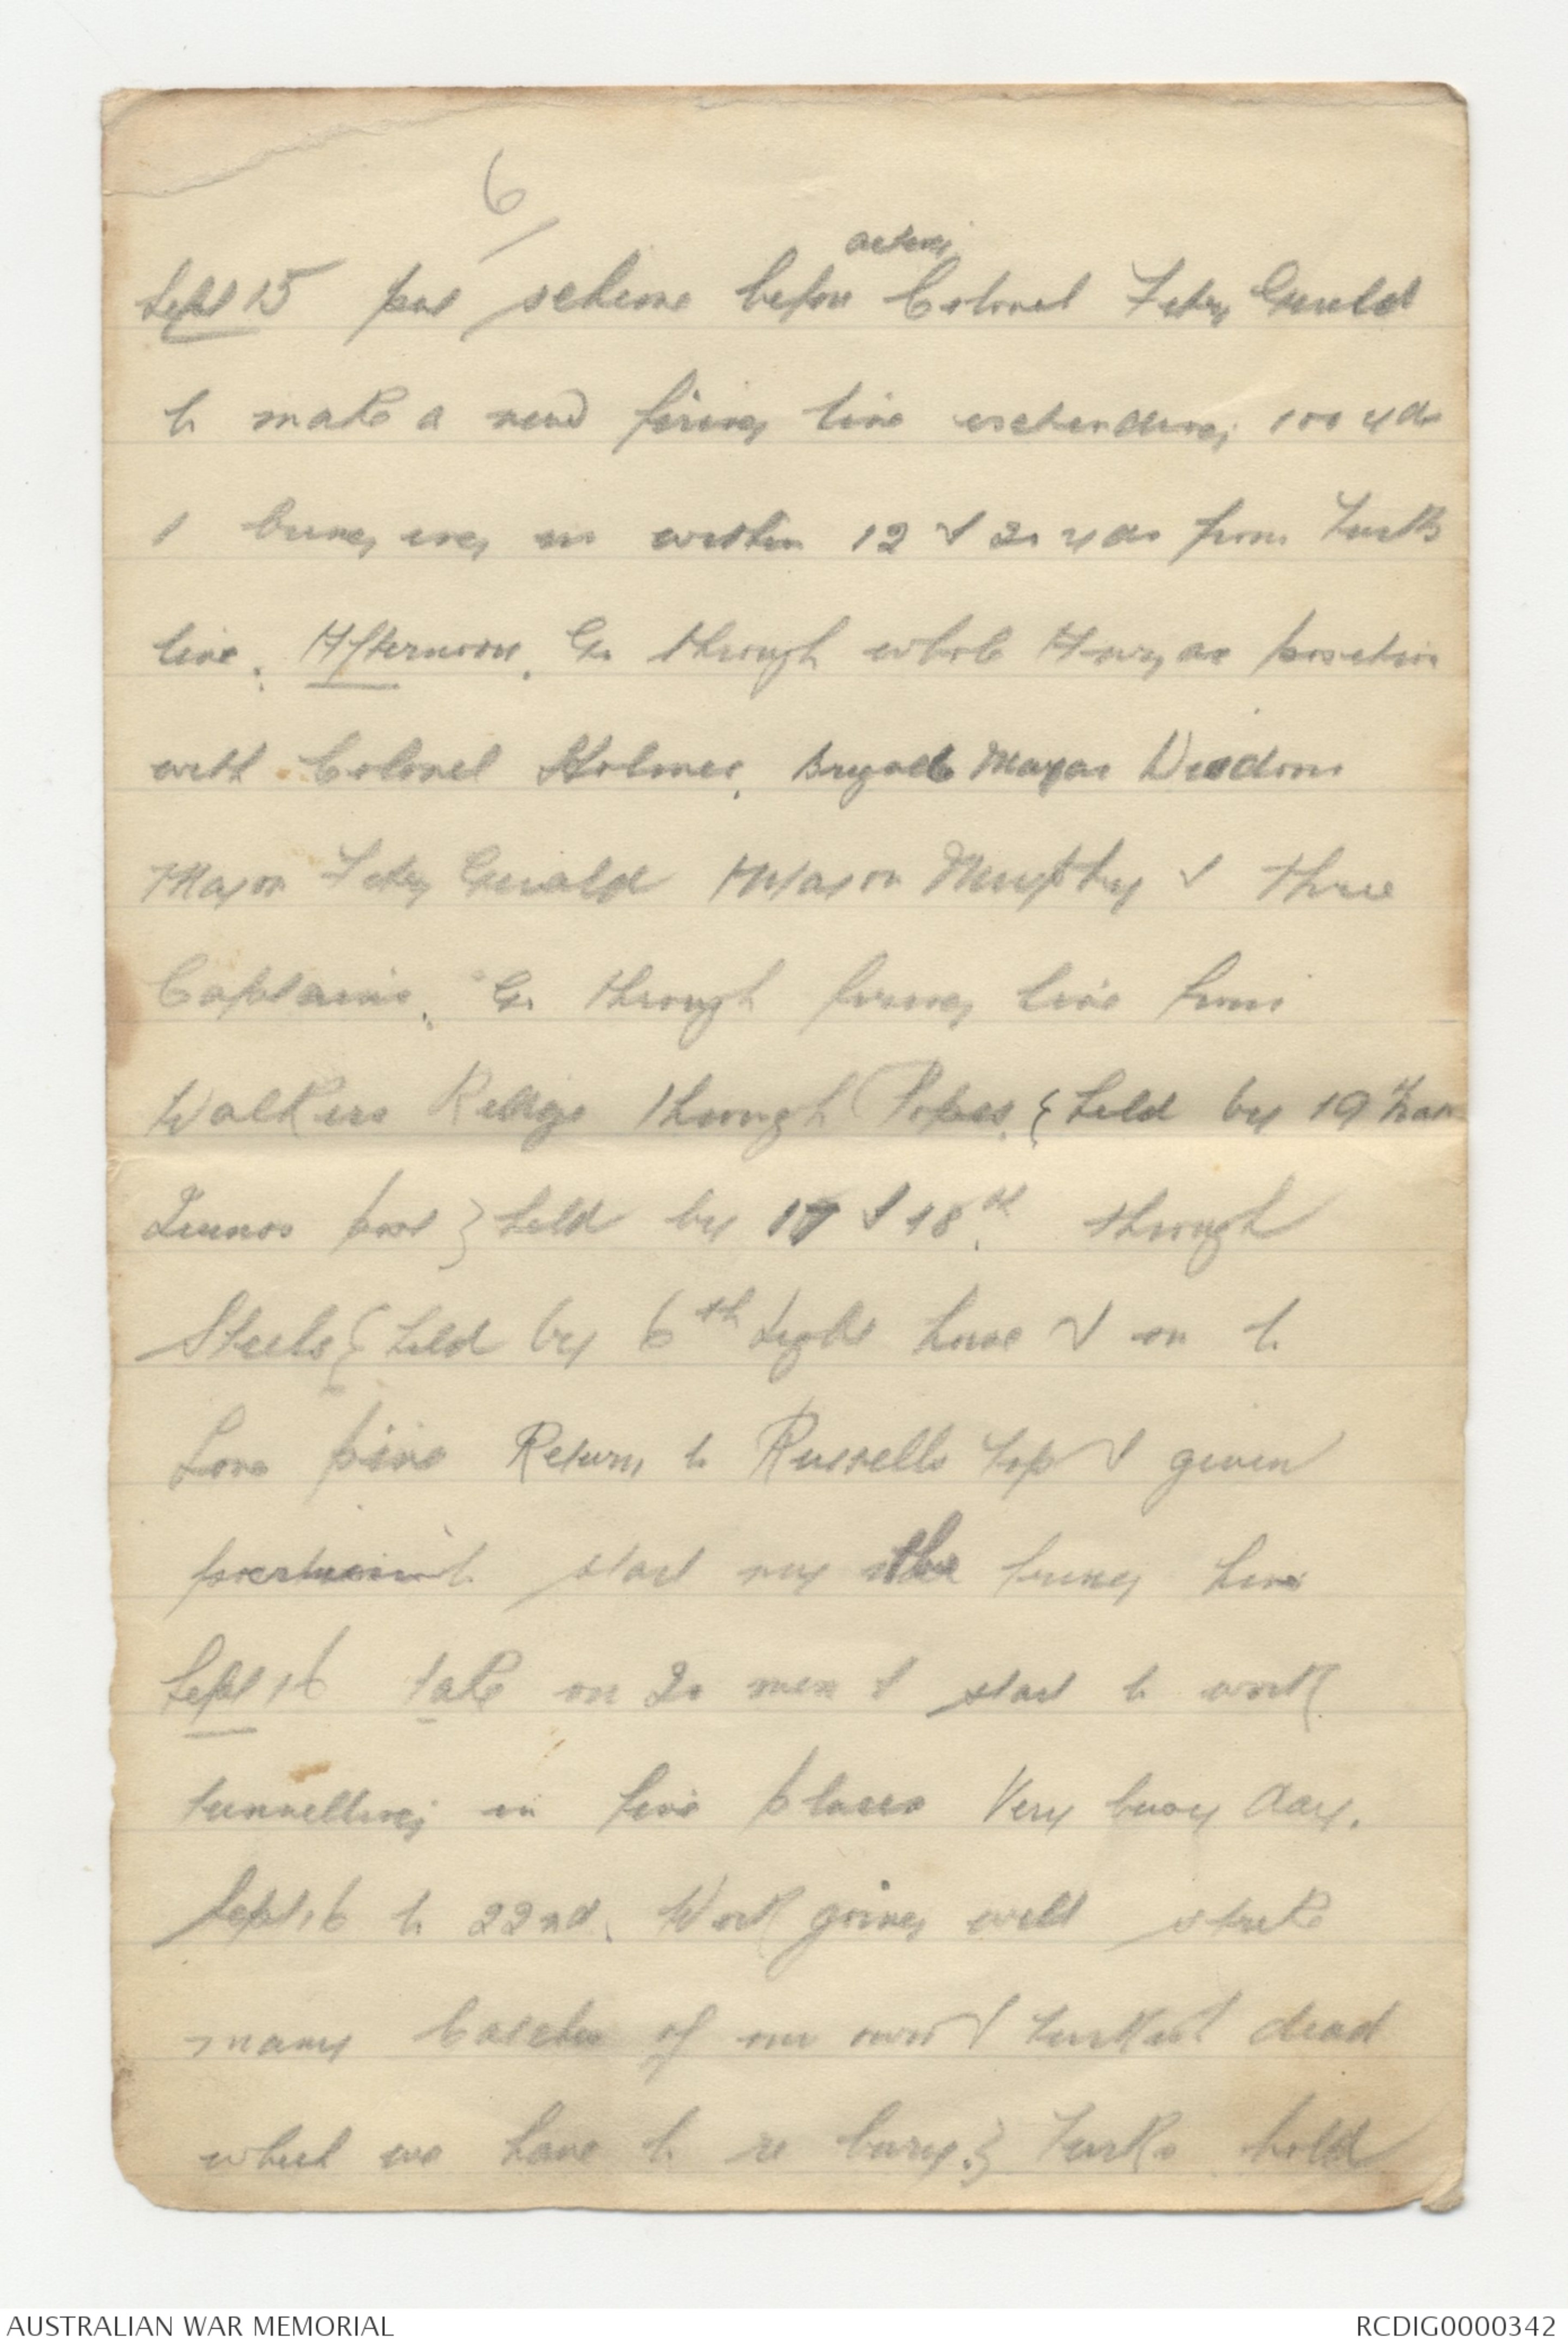 6
acting
Sept 15 put scheme before Colonel Fitzy Gerald
to make a new firing line extending 100 yds
& bring us in within 12 & 20 yds from Turks
line. Afternoon. Go through whole Anzac position
with Colonel Holmes. Brigade Major Wisdom
Major Fitzy Gerald Major Murphy & three
Captains. Go through firing line from
Walkers Ridge through Popes. { held by 19 Batt
Quinns post } held by 17 & 18th through
Steels { held by 6th Light horse & on to
Lone pine Return to Russells top & given
to start my firing line
Sept 16 take on 20 men & start to work
tunnelling in five places Very busy day.
Sept 16 to 22nd. Work going well strike
many of our own & Turkish dead
which we have to re bury. } Turks hold
AUSTRALIAN WAR MEMORIAL
RCDIG0000342